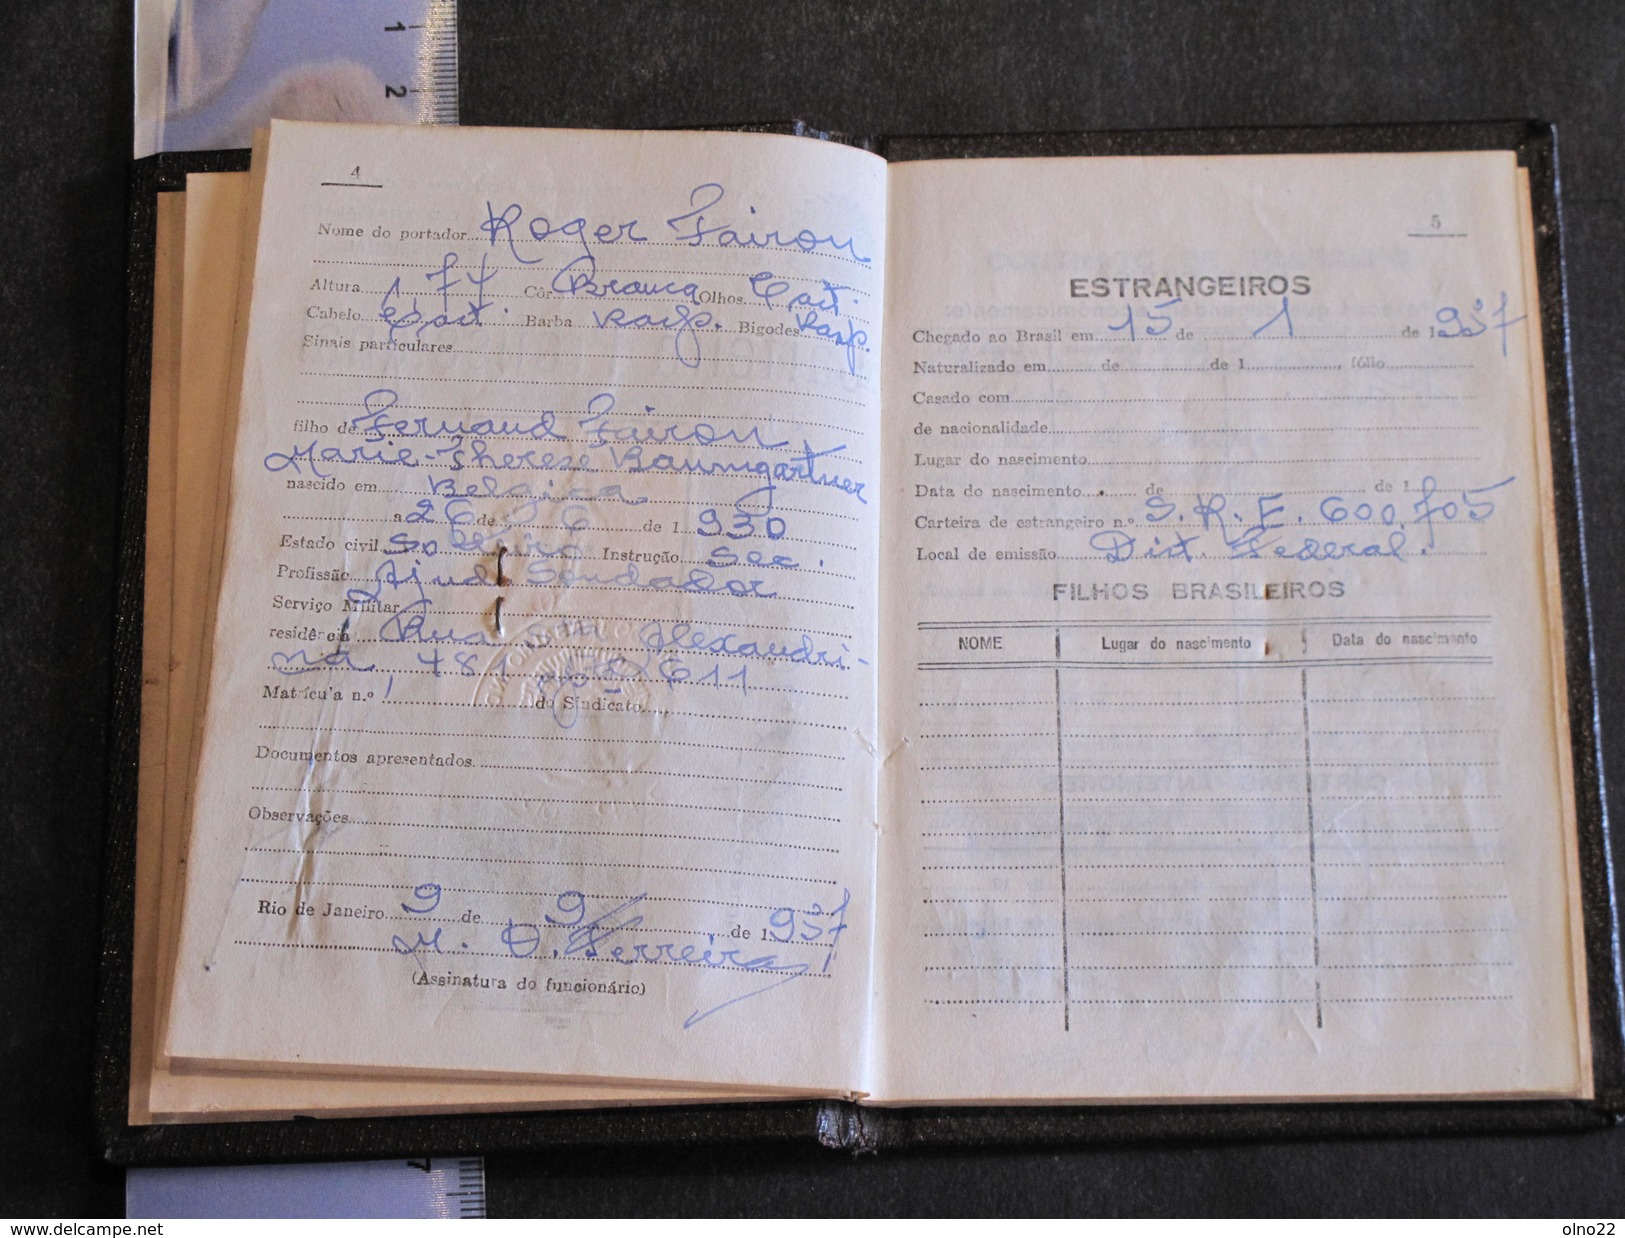 1
2
4
Nome do portador Roger Fairon
Altura 1,74 Côr Branca Olhos Cast.
Cabelo Cast. Barba rasp. Bigodes Rasp.
Sinais particulares
filho de Fernand Fairon
Marie-Therese Baumgartner
nascido em Belgica
a 26 de 6 de 1 930
Estado civil Solteiro Instrução Sec.
Profissão Ajud Sondador
Serviço Militar
residência Rua Alexandri-
na, 481 611
Matrícula n.º do Sindicato
Documentos apresentados
Observações
Rio de Janeiro 9 de 9 de 1 957
M. O. Ferreira
(Assinatura do funcionário)
5
ESTRANGEIROS
Chegado ao Brasil em 15 de 1 de 1 957
Naturalizado em de de 1 , fólio
Casado com
de nacionalidade
Lugar do nascimento
Data do nascimento de de 1
Carteira de estrangeiro n.º S.R.E. 600.705
Local de emissão Dist. Federal.
FILHOS BRASILEIROS
NOME Lugar do nascimento Data do nascimento
7
www.delcampe.net
olno22